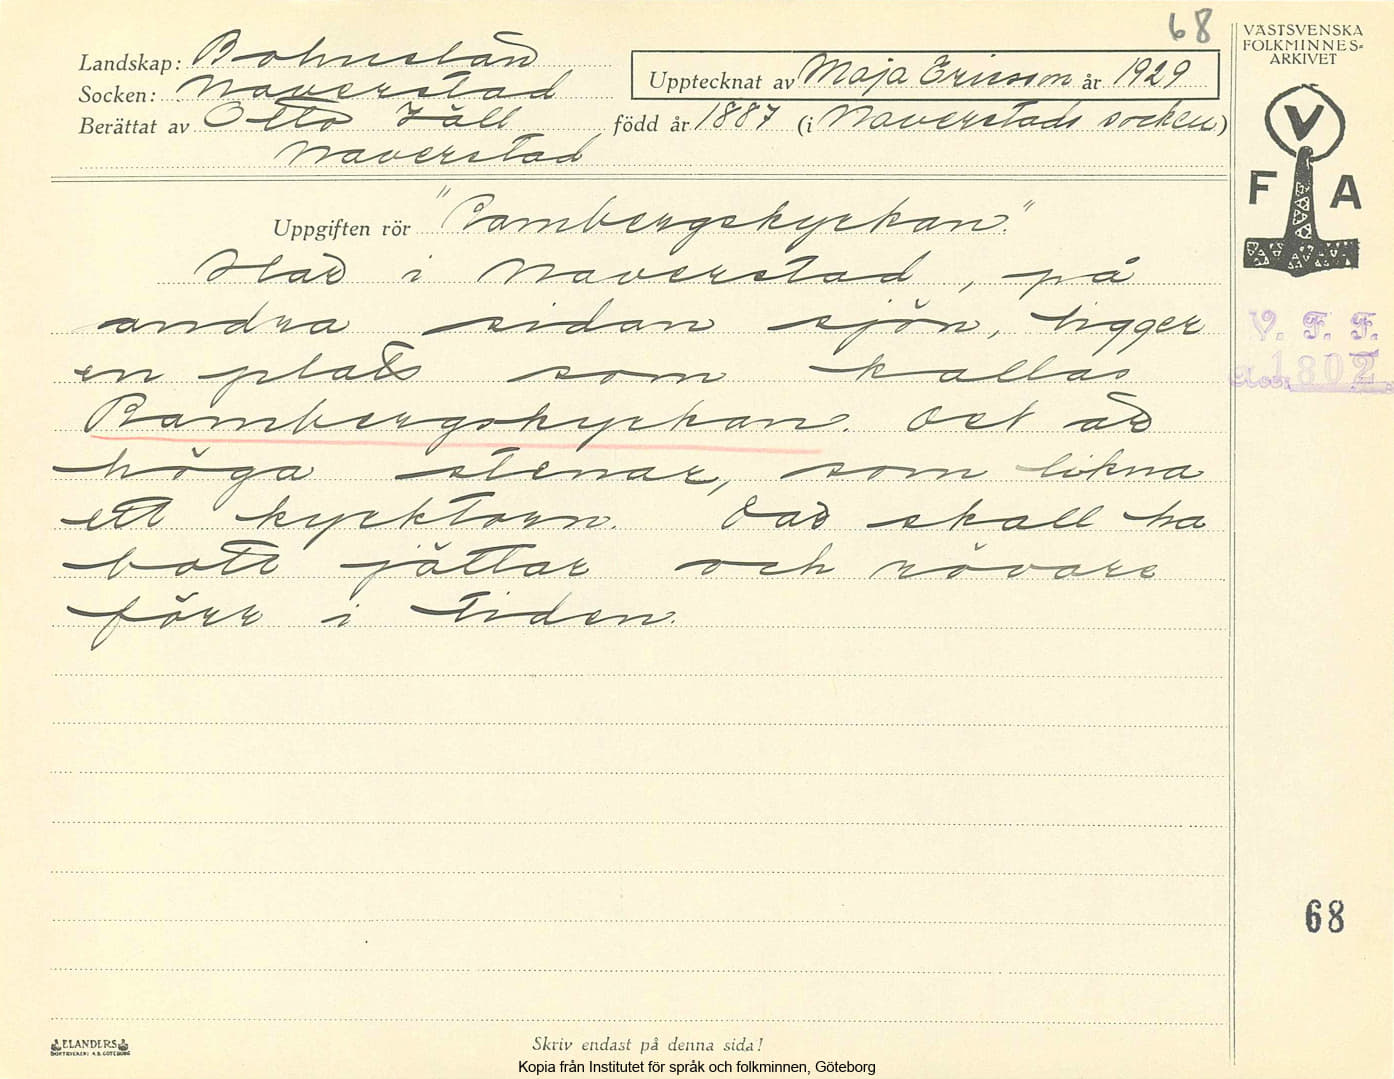 68
Landskap: Bohuslän
Socken: Naverstad
Berättat av Otto Zäll född år 1887 (i Naverstads socken)
Naverstad
Upptecknat av Maja Ericsson år 1929
VÄSTSVENSKA
FOLKMINNES-
ARKIVET
V
F A
Uppgiften rör "Bambergskyrkan."
Här i Naverstad, på
andra sidan sjön, ligger
en plats som kallas
Bambergskyrkan. Det är
höga stenar, som likna
ett kyrktorn. Där skall ha
bott jättar och rövare
förr i tiden.
V. F. F.
Acc. 1802
68
ELANDERS
BOKTRYCKERI A.B. GÖTEBORG
Skriv endast på denna sida!
Kopia från Institutet för språk och folkminnen, Göteborg